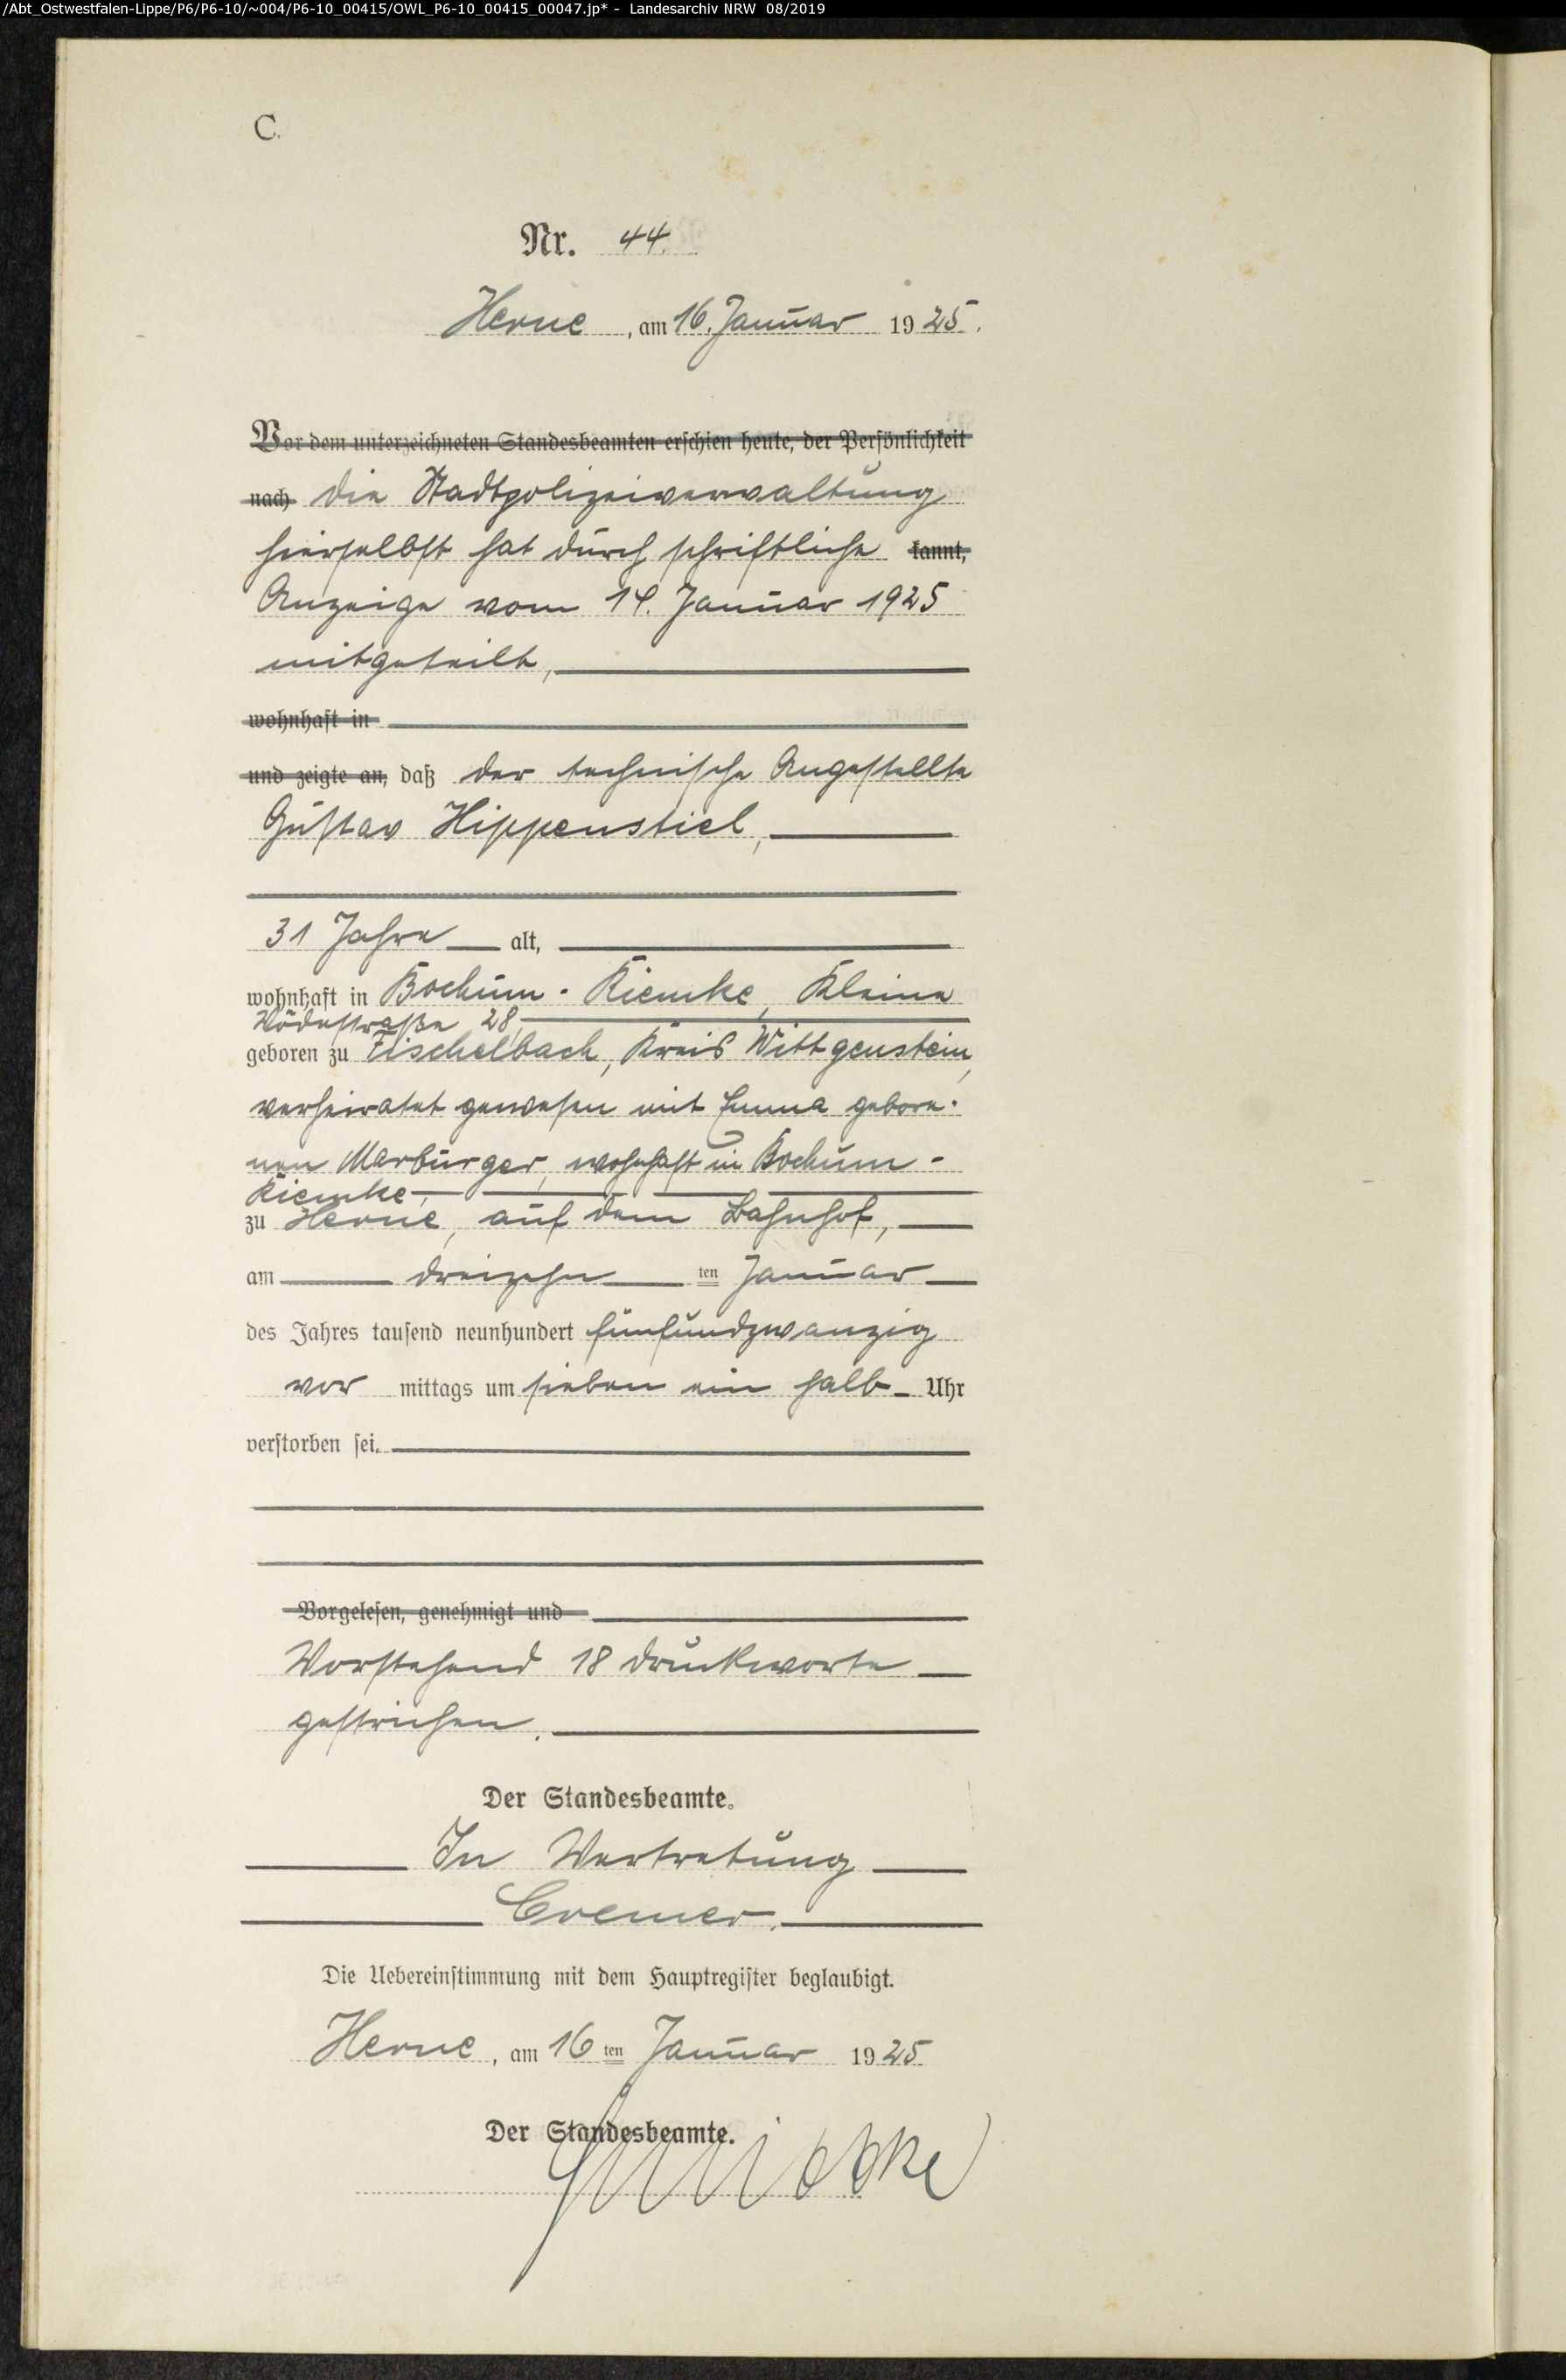 /Abt_Ostwestfalen-Lippe/P6/P6-10/~004/P6-10_00415/OWL_P6-10_00415_00047.jp* - Landesarchiv NRW 08/2019
C.
Nr. 44.
Herne, am 16. Januar 1925.
Vor dem unterzeichneten Standesbeamten erschien heute, der Persönlichkeit
nach die Stadtpolizeiverwaltung
hierselbst hat durch schriftliche kannt,
Anzeige vom 14. Januar 1925
mitgeteilt,
wohnhaft in
und zeigte an, daß der technische Angestellte
Gustav Hippenstiel,
31 Jahre alt,
wohnhaft in Bochum-Riemke, Kleine
Vödestraße 28,
geboren zu Fischelbach, Kreis Wittgenstein,
verheiratet gewesen mit Emma gebore-
nen Marburger, wohnhaft in Bochum-
Riemke,
zu Herne, auf dem Bahnhof,
am dreizehn ten Januar
des Jahres tausend neunhundert fünfundzwanzig
vor mittags um sieben ein halb Uhr
verstorben sei.
Vorgelesen, genehmigt und
Vorstehend 18 Druckworte
gestrichen.
Der Standesbeamte.
In Vertretung
Cremer.
Die Uebereinstimmung mit dem Hauptregister beglaubigt.
Herne, am 16 ten Januar 1925
Der Standesbeamte.